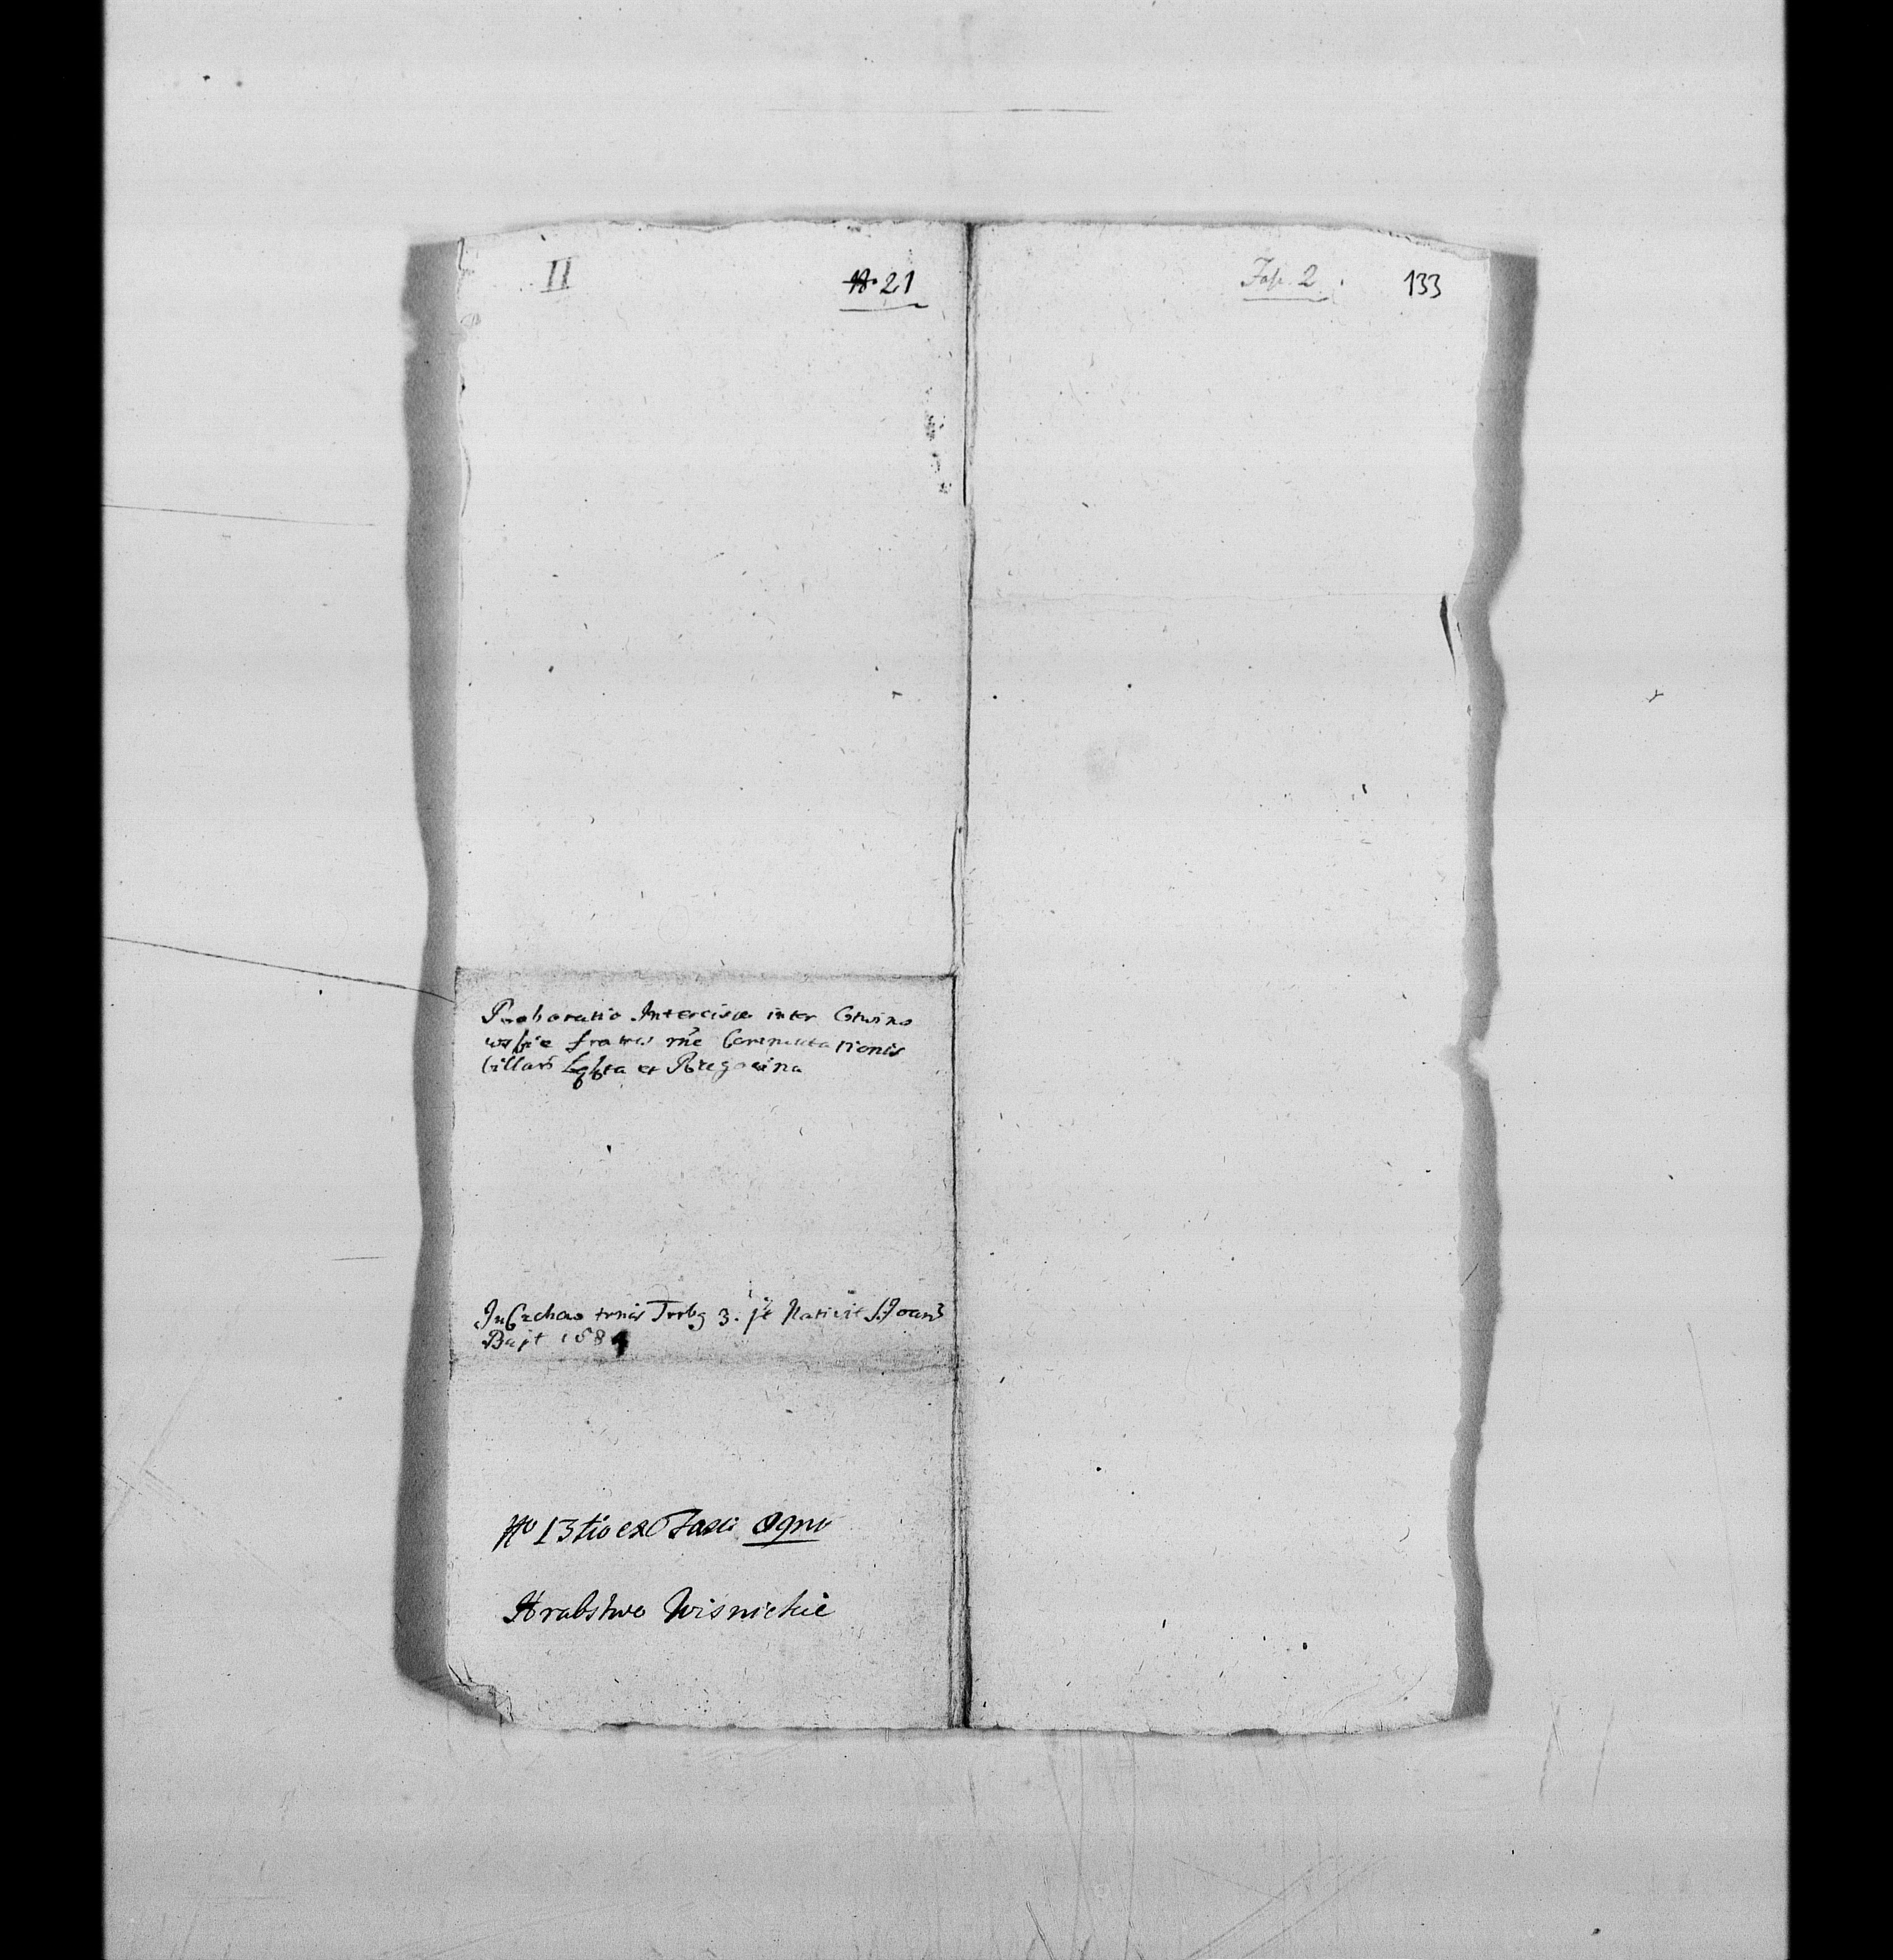 II
No 21
Fasc. 2.
133
Roboratio Intercisæ inter Gtwino
wskie fratres rñe Commutationis
Villarū Łęka et Przegocina
In Czchow trnis Trrbg 3. pt Nativit S. Joan̄
Bapt 1684
No 13tio ex Fasci Ogni
Hrabstwo Wisnickie